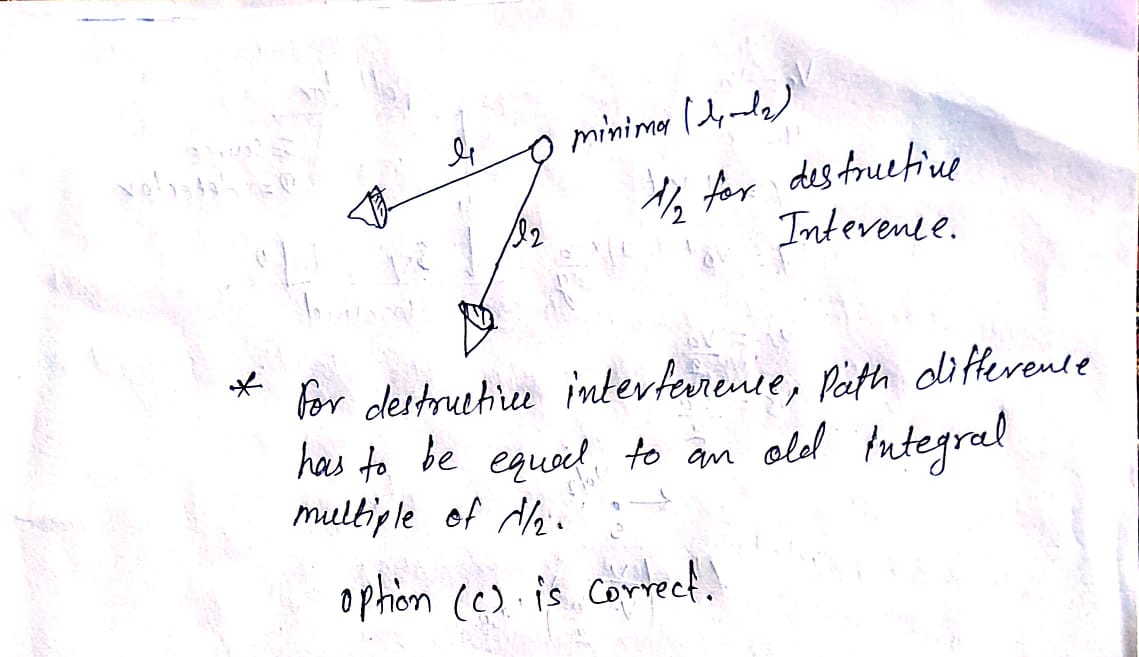 l₁
minima (l₁-l₂)
λ/2 for destructive
Intevence.
l2
* For destructive interference, Path difference
has to be equal to an old integral
multiple of λ/2.
option (c) is correct.